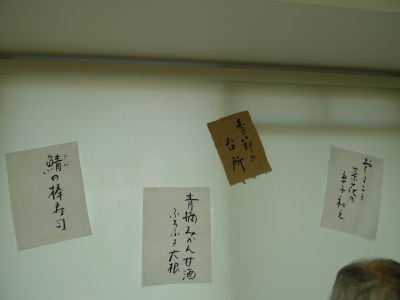 おしること
菜花の
辛子和え
季節の
台所
青摘みかん甘酒
ふろふき大根
さば
鯖の棒寿司